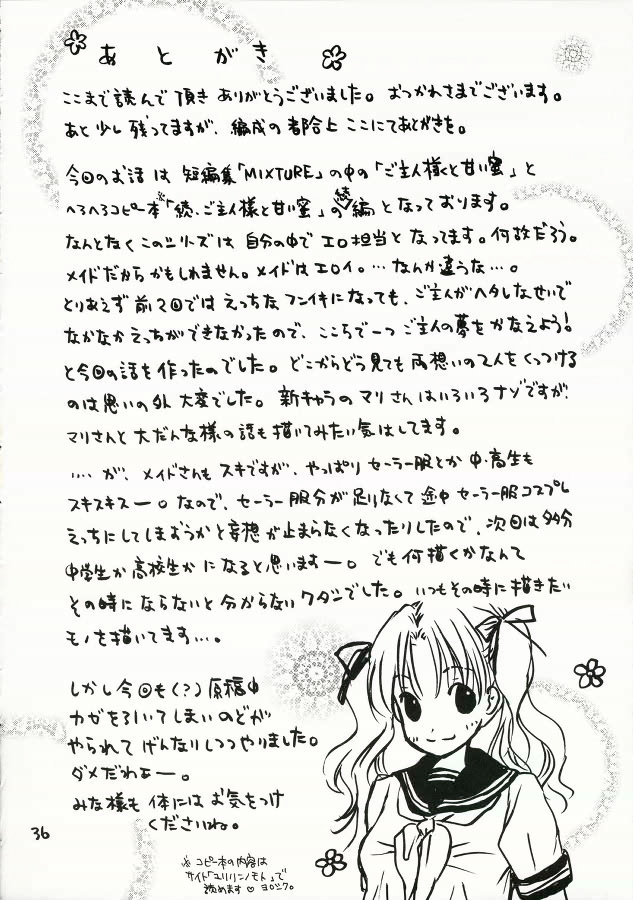 あとがき
ここまで読んで頂きありがとうございました。おつかれさまでございます。
あと少し残ってますが、編成の都合上ここにてあとがきを。
今回のお話は短編集「MIXTURE」の中の「ご主人様と甘い蜜」と
へろへろコピー本※「続・ご主人様と甘い蜜」の続編となっております。
なんとなくこのシリーズは自分の中でエロ担当となってます。何故だろう。
メイドだからかもしれません。メイドはエロイ。…なんか違うな…。
とりあえず前2回ではえっちな、フンイキになっても、ご主人がヘタレなせいで
なかなかえっちができなかったので、ここらで一つご主人の夢をかなえよう！
と今回の話を作ったのでした。どこからどう見ても両想いの2人をくっつける
のは思いの外大変でした。新キャラのマリさんはいろいろナゾですが、
マリさんと大だんな様の話も描いてみたい気はしてます。
….が、メイドさんもスキですが、やっぱりセーラー服とか中・高生も
スキスキスー。なので、セーラー服分が足りなくて途中セーラー服コスプレ
えっちにしてしまおうかと妄想が止まらなくなったりしたので、次回は多分
中学生か高校生かになると思いますー。でも何描くかなんて
その時にならないと分からないワタシでした。いつもその時に描きたい
モノを描いてます…。
しかし今回も(?)原稿中
カゼを引いてしまいのどが
やられてげんなりしつつやりました。
ダメだわぁー。
みな様も体にはお気をつけ
くださいね。
36
※コピー本の内容は
サイト「ユリリンノもん」で
読めます♡ヨロシク。